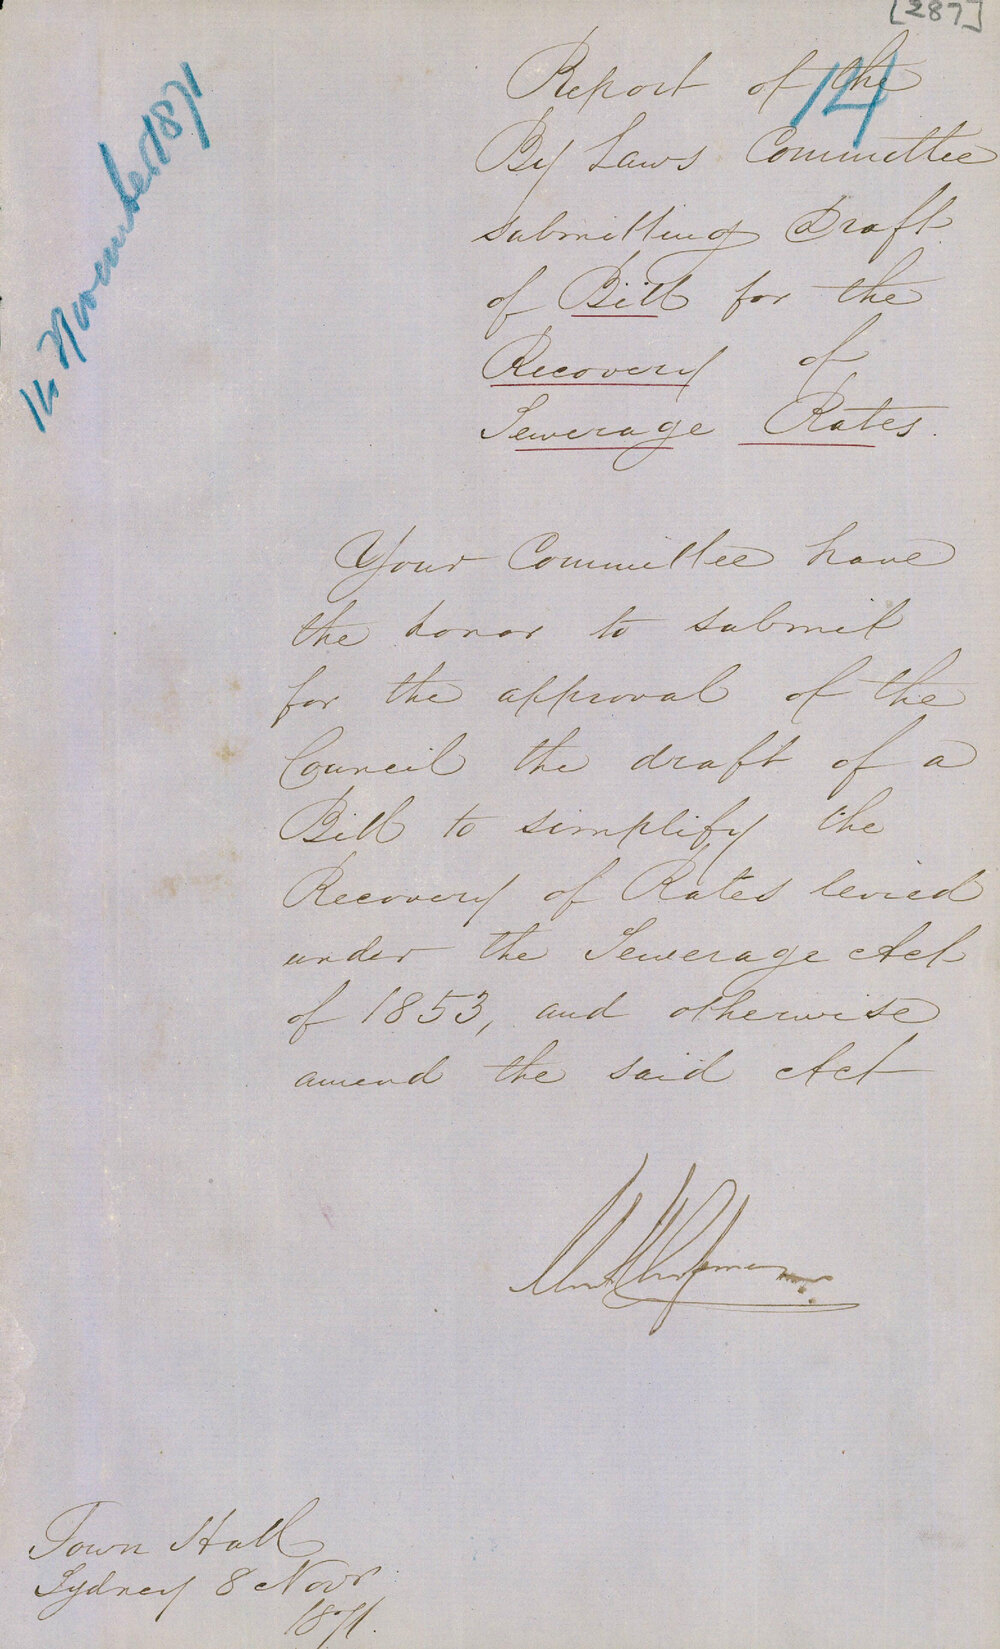 [287]
14
14 November 1871
Report of the
By Laws Committee
submitting Draft
of Bill for the
Recovery of
Sewerage Rates.
Your Committee have
the honor to submit
for the approval of the
Council the draft of a
Bill to simplify the
Recovery of Rates levied
under the Sewerage Act
of 1853, and otherwise
amend the said Act
Chapman
Town Hall
Sydney 8 Novr
1871.